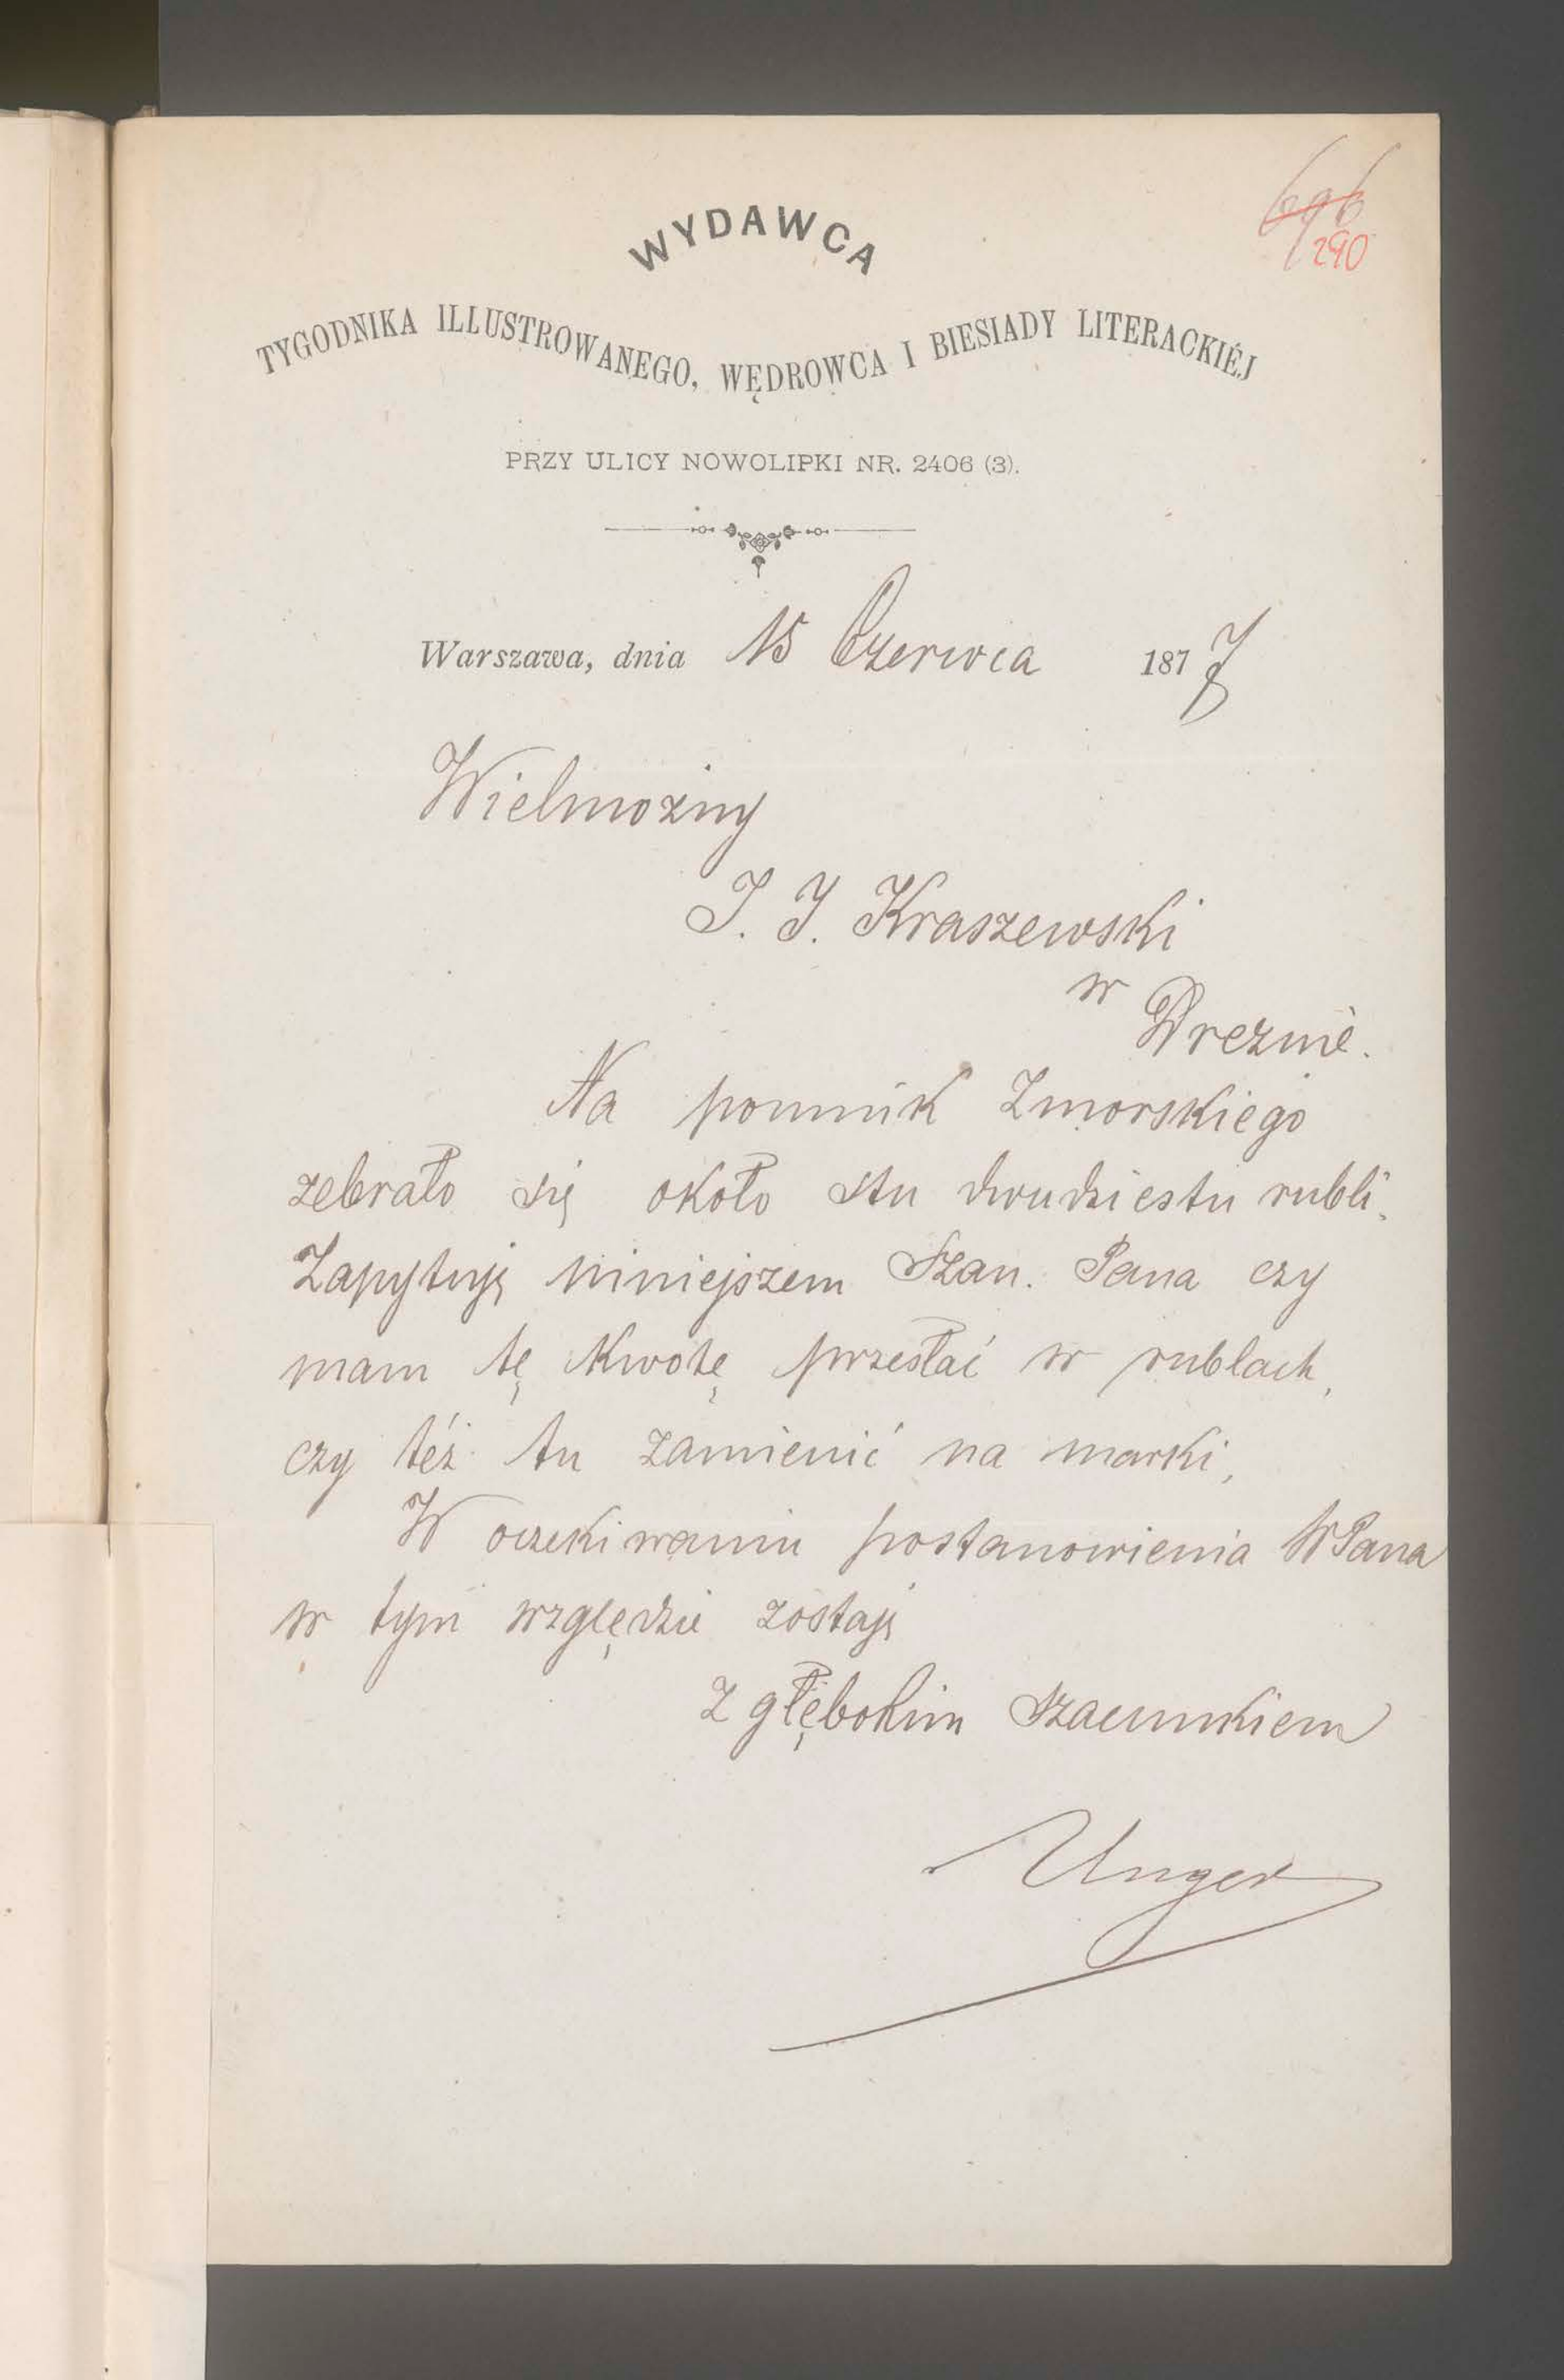 696
290
WYDAWCA
TYGODNIKA ILLUSTROWANEGO, WĘDROWCA I BIESIADY LITERACKIÉJ
PRZY ULICY NOWOLIPKI NR. 2406 (3).
Warszawa, dnia 15 Czerwca 1877
Wielmożny
J. J. Kraszewski
w
Dreznie.
Na pomnik Zmorskiego
zebrało się około stu dwudziestu rubli.
Zapytuję niniejszem Szan. Pana czy
mam tę kwotę przesłać w rublach,
czy téż tu zamienić na marki,
W oczekiwaniu postanowienia WPana
w tym względzie zostaję
z głębokim szacunkiem
Unger